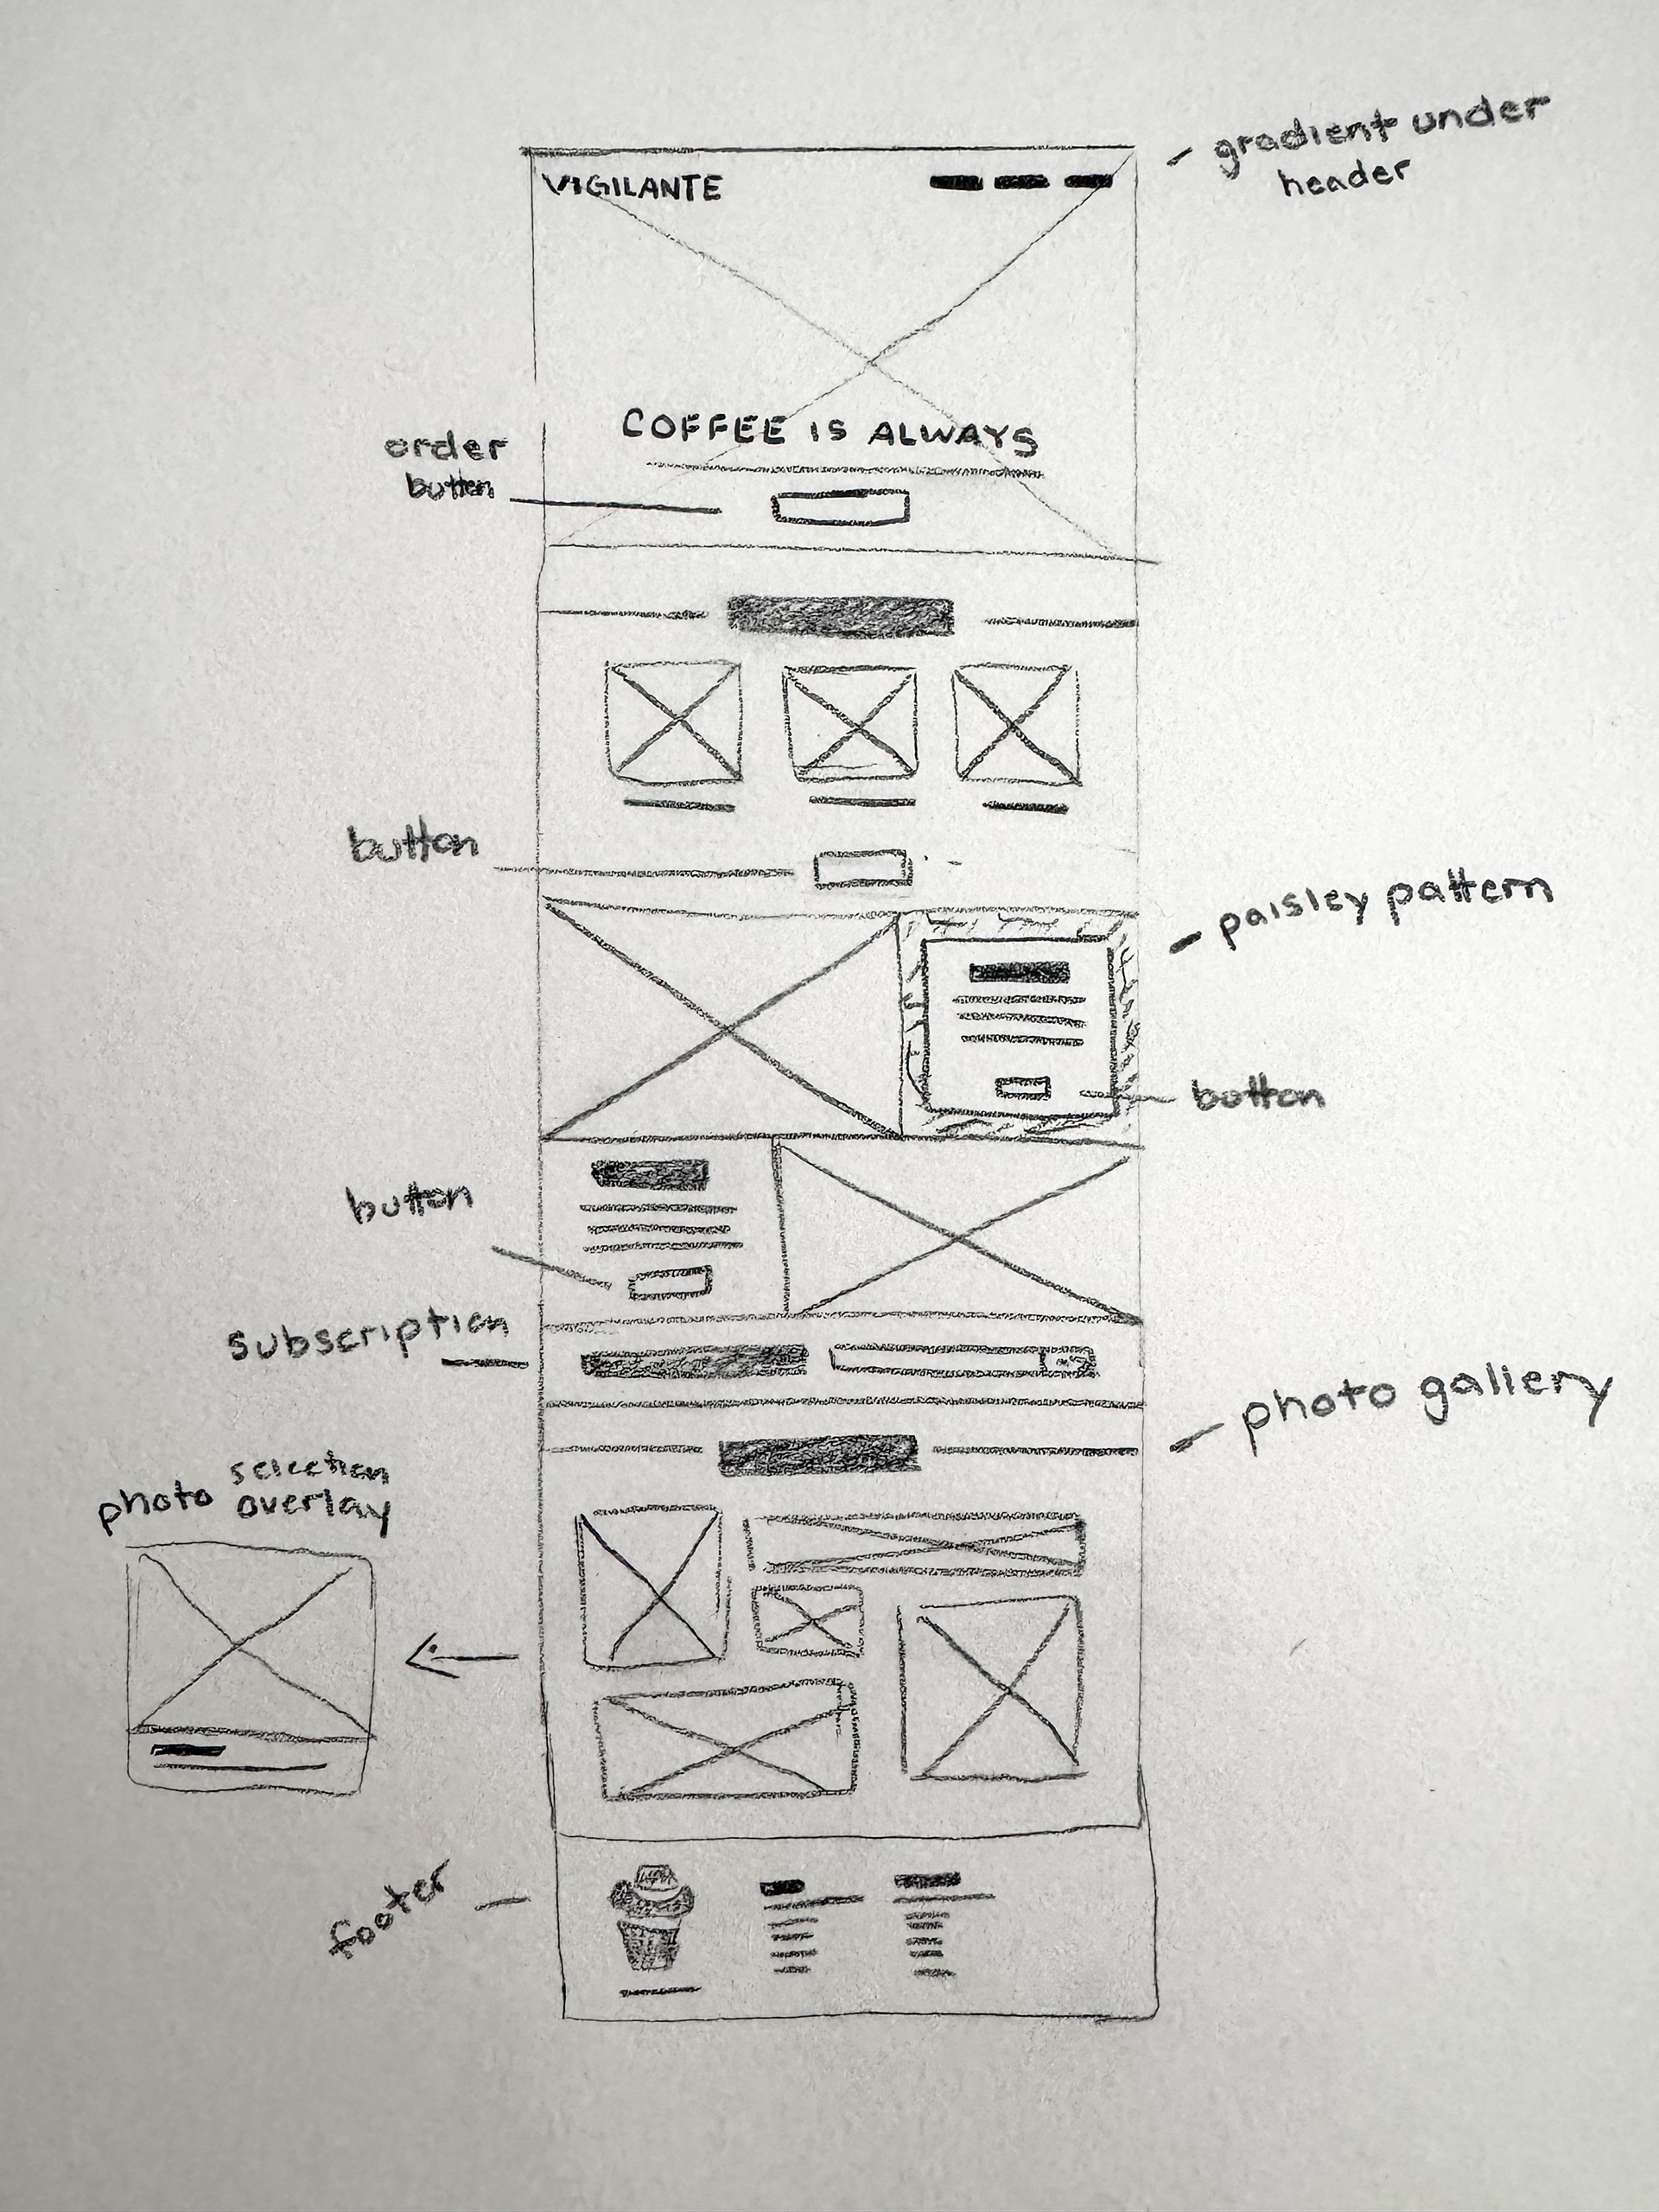 gradient under
header
VIGILANTE
COFFEE IS ALWAYS
order
button
button
paisley pattern
button
button
subscription
photo gallery
selection
photo overlay
footer